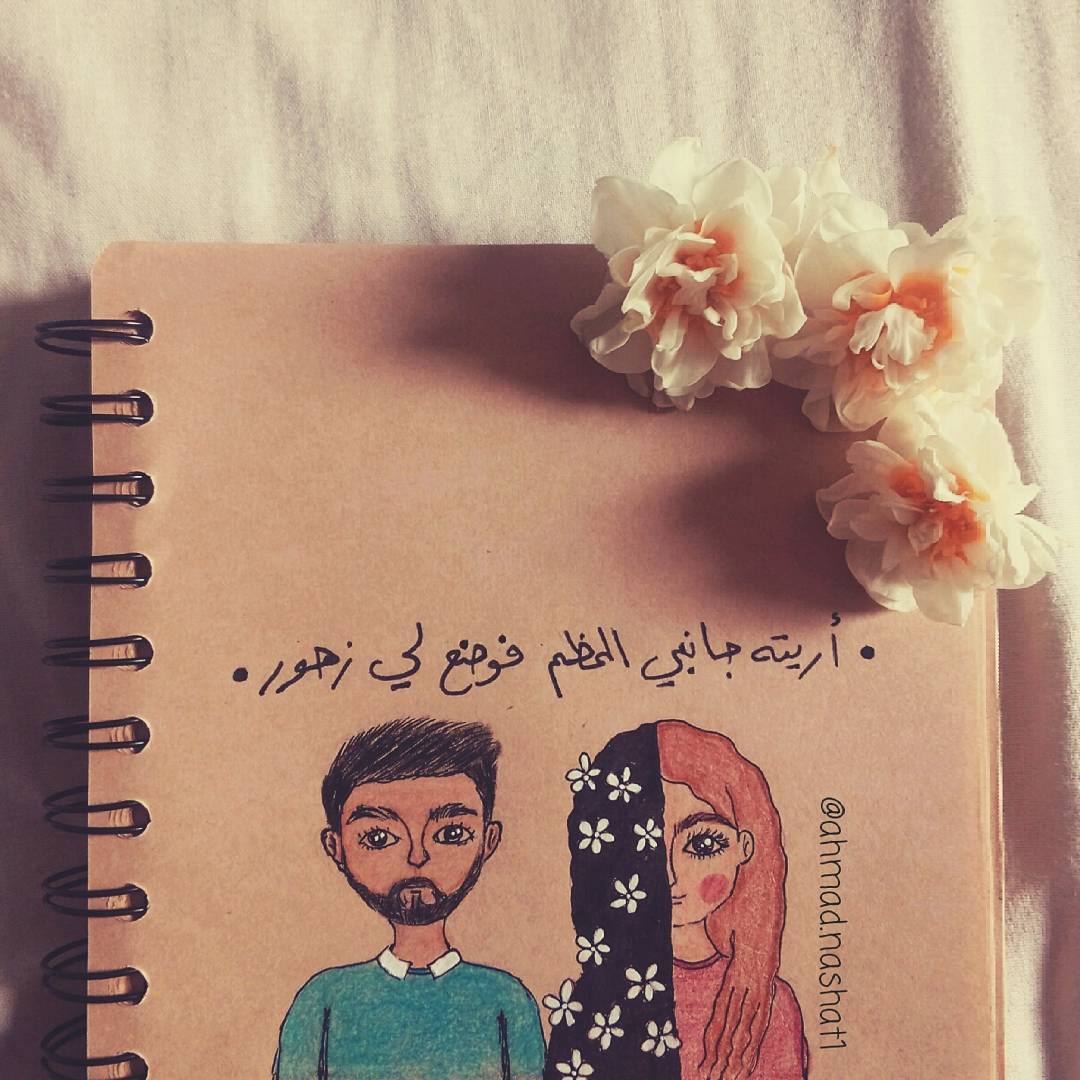 • أريته جانبي المظلم فوضع لي زهور •
@ahmad.nashat1